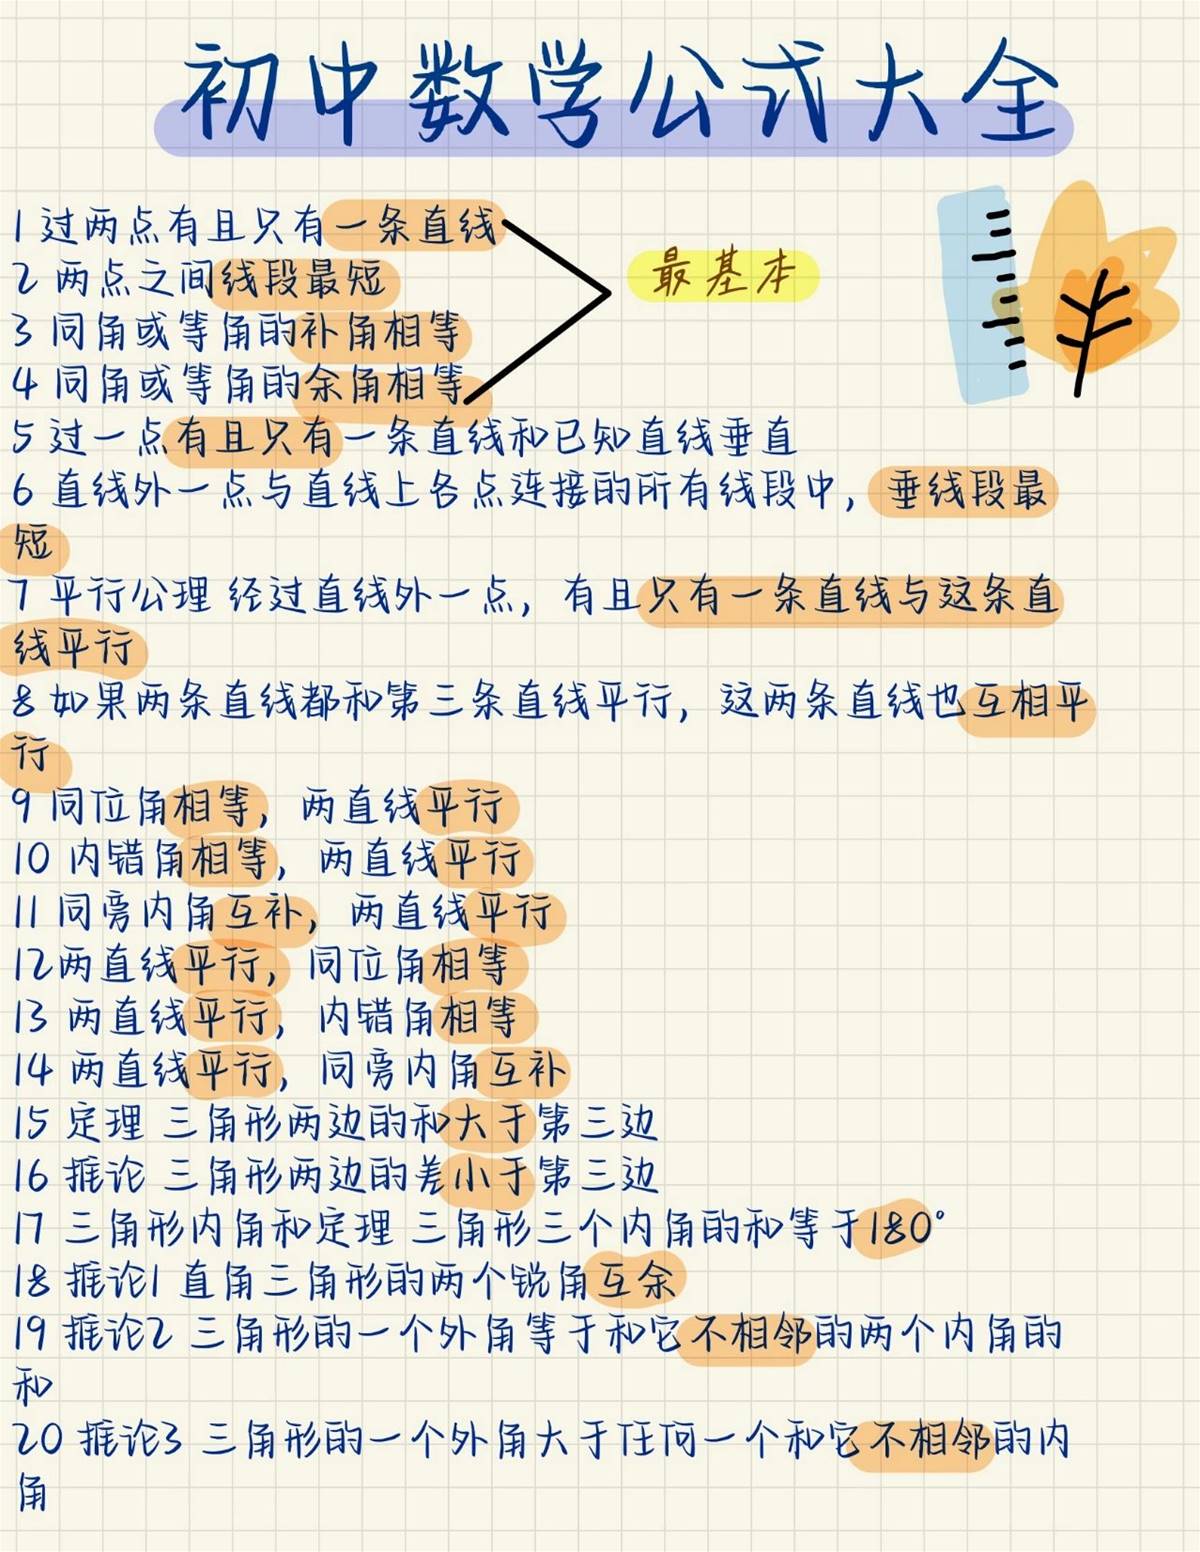 初中数学公式大全
1 过两点有且只有一条直线
2 两点之间线段最短
最基本
3 同角或等角的补角相等
4 同角或等角的余角相等
5 过一点有且只有一条直线和已知直线垂直
6 直线外一点与直线上各点连接的所有线段中，垂线段最
短
7 平行公理 经过直线外一点，有且只有一条直线与这条直
线平行
8 如果两条直线都和第三条直线平行，这两条直线也互相平
行
9 同位角相等，两直线平行
10 内错角相等，两直线平行
11 同旁内角互补，两直线平行
12两直线平行，同位角相等
13 两直线平行，内错角相等
14 两直线平行，同旁内角互补
15 定理 三角形两边的和大于第三边
16 推论 三角形两边的差小于第三边
17 三角形内角和定理 三角形三个内角的和等于180°
18 推论1 直角三角形的两个锐角互余
19 推论2 三角形的一个外角等于和它不相邻的两个内角的
和
20 推论3 三角形的一个外角大于任何一个和它不相邻的内
角